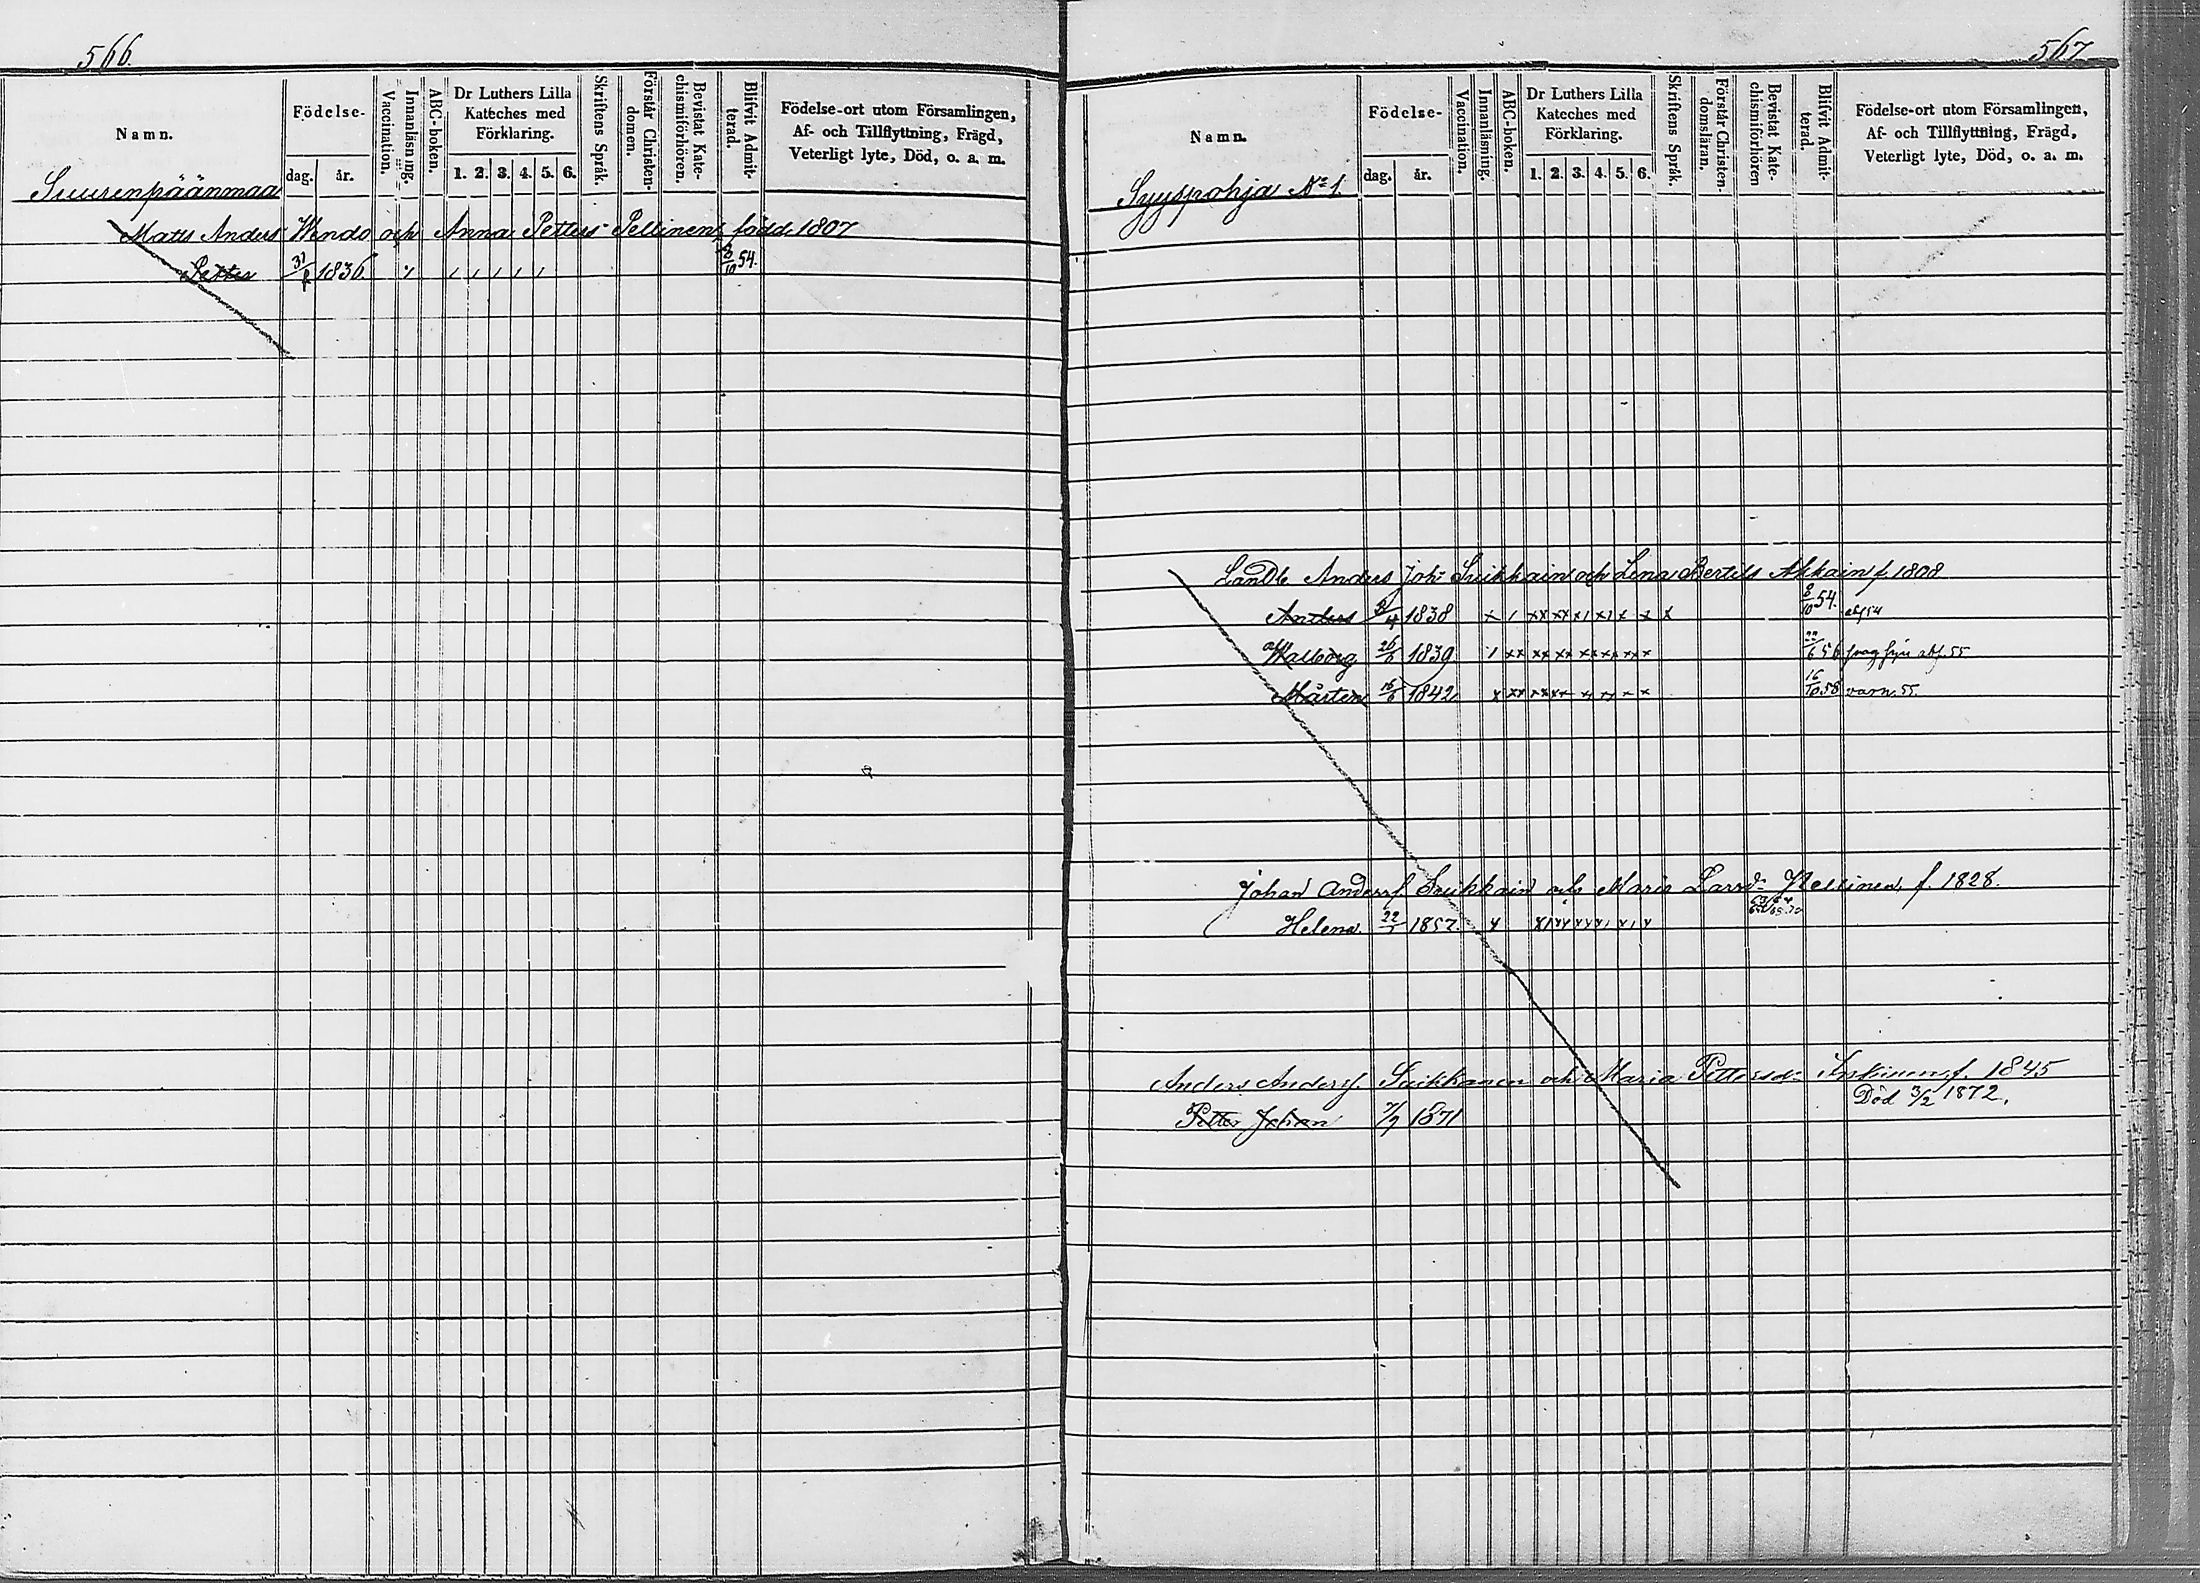 566.
Namn.
Födelse-
dag.
år.
Vaccination.
Innanläsning.
ABC-boken.
Dr Luthers Lilla
Kateches med
Förklaring.
1. 2. 3. 4. 5. 6.
Skriftens Språk.
Förstår Christen-
domen.
Bevistat Kate-
chismiförhören.
Blifvit Admit-
terad.
Födelse-ort utom Församlingen,
Af- och Tillflyttning, Frägd,
Veterligt lyte, Död, o. a. m.
Suurenpäänmaa
Matts Anders Windo och Anna Petters Pellinen, född 1807
Petter 1836 8/10 54.
567
Namn.
Födelse-
dag.
år.
Vaccination.
Innanläsning.
ABC-boken.
Dr Luthers Lilla
Kateches med
Förklaring.
1. 2. 3. 4. 5. 6.
Skriftens Språk.
Förstår Christen-
domsläran.
Bevistat Kate-
chismiförhören
Blifvit Admit-
terad.
Födelse-ort utom Församlingen,
Af- och Tillflyttning, Frägd,
Veterligt lyte, Död, o. a. m.
Syyspohja No 1.
Anders Joh: Suikkain och Lena Bertils Akkain f. 1808
Anders 1838 8/10 54.
Walborg 26/6 1839 22/6 56
Mårten 16/6 1842 16/10 58 varn. 55.
Johan Andersf. Suikkain och Maria Larsd: f. 1828.
Helena. 1857.
Anders Andersf. Suikkanen och Maria Pettersd: f. 1845
Död 3/2 1872.
Petter Johan 1871